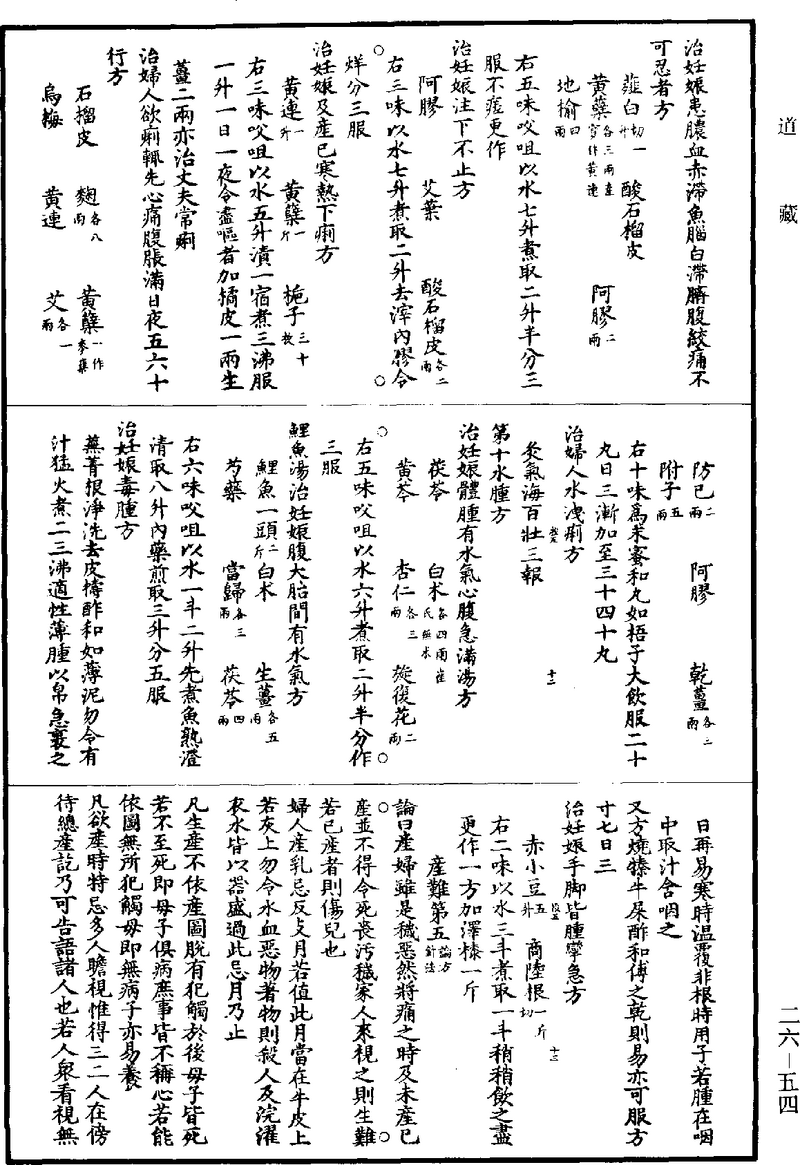 道藏
治妊娠患膿血赤滯魚腦白滯臍腹絞痛不
可忍者方
薤白切一升 酸石榴皮
黃蘗各三兩產寶作黃連 阿膠二兩
地榆四兩
右五味㕮咀以水七升煮取二升半分三
服不瘥更作
治妊娠注下不止方
阿膠 艾葉 酸石榴皮各二兩
右三味以水七升煮取二升去滓內膠令
烊分三服
治妊娠及產已寒熱下痢方
黃連一升 黃蘗一斤 梔子三十枚
右三味㕮咀以水五升漬一宿煮三沸服
一升一日一夜令盡嘔者加橘皮一兩生
薑二兩亦治丈夫常痢
治婦人欲痢輒先心痛腹脹滿日夜五六十
行方
石榴皮 麴各八兩 黃蘗一作麥蘗
烏梅 黃連 艾各一兩
防己二兩 阿膠 乾薑各三兩
附子五兩
右十味為末蜜和丸如梧子大飲服二十
丸日三漸加至三十四十丸
治婦人水洩痢方
灸氣海百壯三報
第十水腫方 十二
治妊娠體腫有水氣心腹急滿湯方
茯苓 白朮各四兩崔氏無朮
黃芩 杏仁各三兩 旋復花二兩
右五味㕮咀以水六升煮取二升半分作
三服
鯉魚湯治妊娠腹大胎間有水氣方
鯉魚一頭二斤 白朮 生薑各五兩
芍藥 當歸各三兩 茯苓四兩
右六味㕮咀以水一斗二升先煮魚熟澄
清取八升內藥煎取三升分五服
治妊娠毒腫方
蕪菁根淨洗去皮擣酢和如薄泥勿令有
汁猛火煮二三沸適性薄腫以帛急裹之
日再易寒時溫覆非根時用子若腫在咽
中取汁含咽之
又方燒犛牛屎酢和傅之乾則易亦可服方
寸七日三
治妊娠手腳皆腫攣急方
赤小豆五升 商陸根一斤切
右二味以水三斗煮取一斗稍稍飲之盡
更作一方加澤漆一斤
產難第五論方針法 十三
論曰產婦雖是穢惡然將痛之時及未產已
產並不得令死喪污穢家人來視之則生難
若已產者則傷兒也
婦人產乳忌反支月若值此月當在牛皮上
若灰上勿令水血惡物著物則殺人及浣濯
衣水皆以器盛過此忌月乃止
凡生產不依產圖脫有犯觸於後母子皆死
若不至死即母子俱病庶事皆不稱心若能
依圖無所犯觸母即無病子亦易養
凡欲產時特忌多人瞻視惟得三二人在傍
待總產訖乃可告語諸人也若人眾看視無
二六—五四